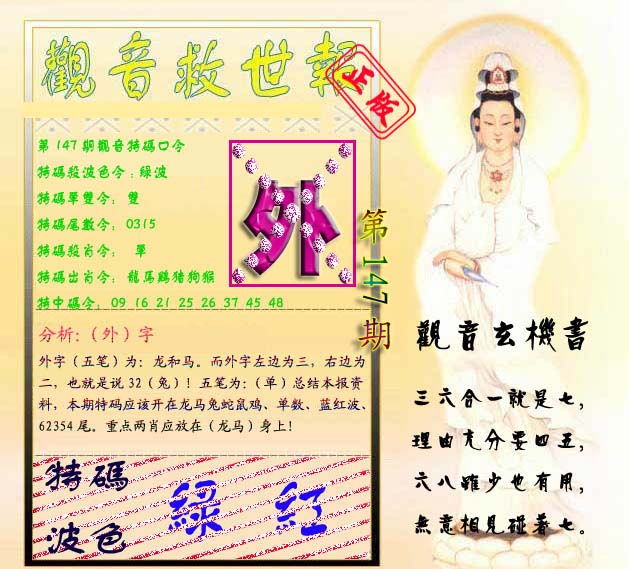 觀音救世報
正版
第147期觀音特碼口令
特碼殺波色令:綠波
特碼單雙令: 雙
特碼尾數令: 0315
特碼殺肖令: 單
特碼出肖令: 龍馬鷄猪狗猴
特中碼令: 09 16 21 25 26 37 45 48
外
第147期
分析:(外)字
外字(五笔)为:龙和马。而外字左边为三,右边为
二,也就是说 32(兔)!五笔为:(单)总结本报资
料,本期特码应该开在龙马兔蛇鼠鸡、单数、蓝红波、
62354 尾。重点两肖应放在(龙马)身上!
特碼
波色
綠 紅
觀音玄機書
三六合一就是七,
理由充分要四五,
六八雖少也有用,
無意相見碰著七。